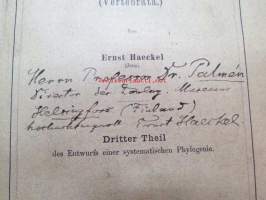 (Vertebrata.)
Von
Ernst Haeckel
(Jena)
Herrn Professor Dr. Palmén
Director des Zoolog. Museums
Helsingfors (Finland)
hochachtungsvoll Ernst Haeckel
Dritter Theil
des Entwurfs einer systematischen Phylogenie.